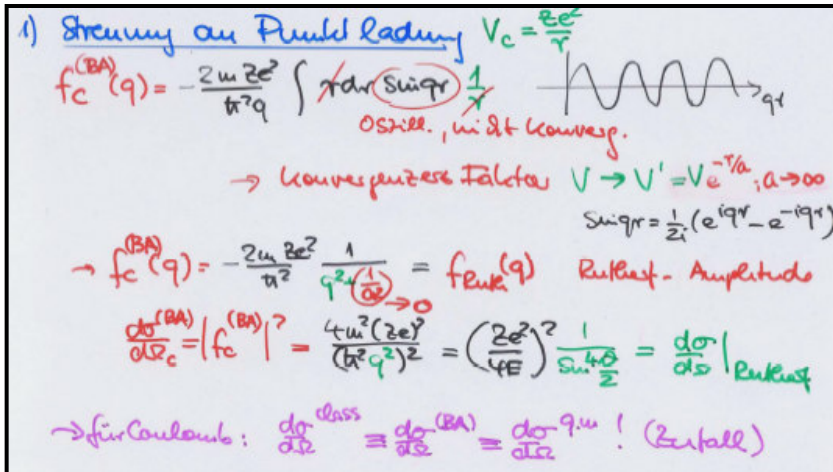 1) Streuung an Punktladung V_C = Ze²/r
f_C^(BA)(q) = -2mZe²/ħ²q ∫ rdr sin qr 1/r
qr
Oszill., nicht konverg.
→ konvergenzerz. Faktor V → V' = Ve^(-r/a), a→∞
sin qr = 1/2i (e^(iqr) - e^(-iqr))
→ f_C^(BA)(q) = -2mZe²/ħ² 1/(q²+(1/a²)) = f_Ruth(q) Rutherf.-Amplitude
→0
dσ^(BA)/dΩ_C = |f_C^(BA)|² = 4m²(Ze)²/(ħ²q²)² = (Ze²/4E)² 1/sin⁴ θ/2 = dσ/dΩ|Rutherf
→ für Coulomb: dσ^class/dΩ ≡ dσ^(BA)/dΩ ≡ dσ^q.m/dΩ ! (Zufall)